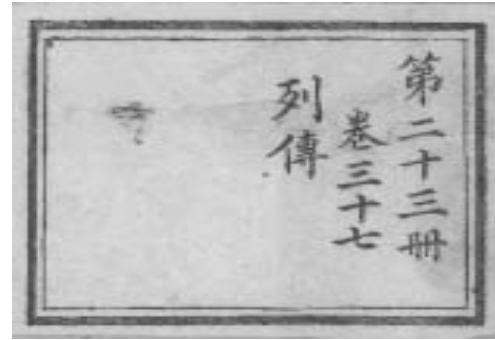 第二十三册
卷三十七
列傳